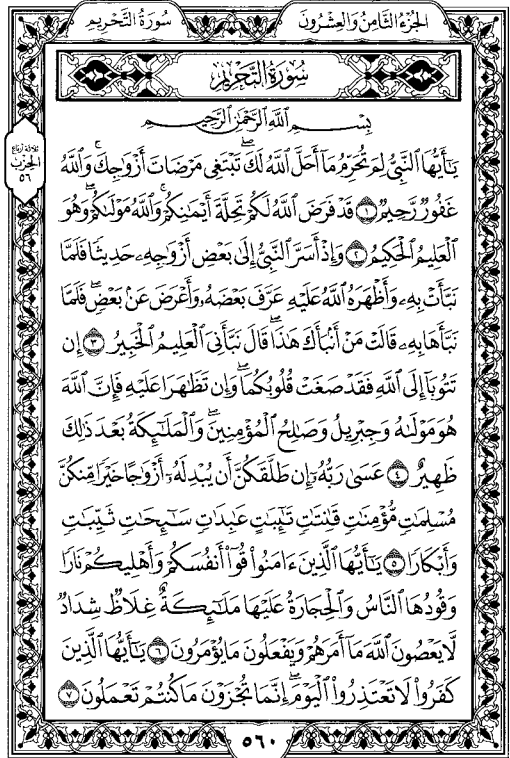 سُورَةُ التَّحْرِيمِ
الجُزْءُ الثَّامِنُ وَالْعِشْرُونَ
سُورَةُ التَّحْرِيمِ
بِسْمِ اللَّهِ الرَّحْمَٰنِ الرَّحِيمِ
يَٰٓأَيُّهَا ٱلنَّبِيُّ لِمَ تُحَرِّمُ مَآ أَحَلَّ ٱللَّهُ لَكَۖ تَبْتَغِي مَرْضَاتَ أَزْوَٰجِكَۚ وَٱللَّهُ
غَفُورٞ رَّحِيمٞ ١ قَدْ فَرَضَ ٱللَّهُ لَكُمْ تَحِلَّةَ أَيْمَٰنِكُمْۚ وَٱللَّهُ مَوْلَىٰكُمْۖ وَهُوَ
ٱلْعَلِيمُ ٱلْحَكِيمُ ٢ وَإِذْ أَسَرَّ ٱلنَّبِيُّ إِلَىٰ بَعْضِ أَزْوَٰجِهِۦ حَدِيثٗا فَلَمَّا
نَبَّأَتْ بِهِۦ وَأَظْهَرَهُ ٱللَّهُ عَلَيْهِ عَرَّفَ بَعْضَهُۥ وَأَعْرَضَ عَنۢ بَعْضٖۖ فَلَمَّا
نَبَّأَهَا بِهِۦ قَالَتْ مَنْ أَنۢبَأَكَ هَٰذَاۖ قَالَ نَبَّأَنِيَ ٱلْعَلِيمُ ٱلْخَبِيرُ ٣ إِن
تَتُوبَآ إِلَى ٱللَّهِ فَقَدْ صَغَتْ قُلُوبُكُمَاۖ وَإِن تَظَٰهَرَا عَلَيْهِ فَإِنَّ ٱللَّهَ
هُوَ مَوْلَىٰهُ وَجِبْرِيلُ وَصَٰلِحُ ٱلْمُؤْمِنِينَۖ وَٱلْمَلَٰٓئِكَةُ بَعْدَ ذَٰلِكَ
ظَهِيرٌ ٤ عَسَىٰ رَبُّهُۥٓ إِن طَلَّقَكُنَّ أَن يُبْدِلَهُۥٓ أَزْوَٰجًا خَيْرٗا مِّنكُنَّ
مُسْلِمَٰتٖ مُّؤْمِنَٰتٖ قَٰنِتَٰتٖ تَٰٓئِبَٰتٍ عَٰبِدَٰتٖ سَٰٓئِحَٰتٖ ثَيِّبَٰتٖ
وَأَبْكَارٗا ٥ يَٰٓأَيُّهَا ٱلَّذِينَ ءَامَنُواْ قُوٓاْ أَنفُسَكُمْ وَأَهْلِيكُمْ نَارٗا
وَقُودُهَا ٱلنَّاسُ وَٱلْحِجَارَةُ عَلَيْهَا مَلَٰٓئِكَةٌ غِلَاظٞ شِدَادٞ
لَّا يَعْصُونَ ٱللَّهَ مَآ أَمَرَهُمْ وَيَفْعَلُونَ مَا يُؤْمَرُونَ ٦ يَٰٓأَيُّهَا ٱلَّذِينَ
كَفَرُواْ لَا تَعْتَذِرُواْ ٱلْيَوْمَۖ إِنَّمَا تُجْزَوْنَ مَا كُنتُمْ تَعْمَلُونَ ٧
ثلاثة أرباع
الحزب
٥٦
٥٦٠